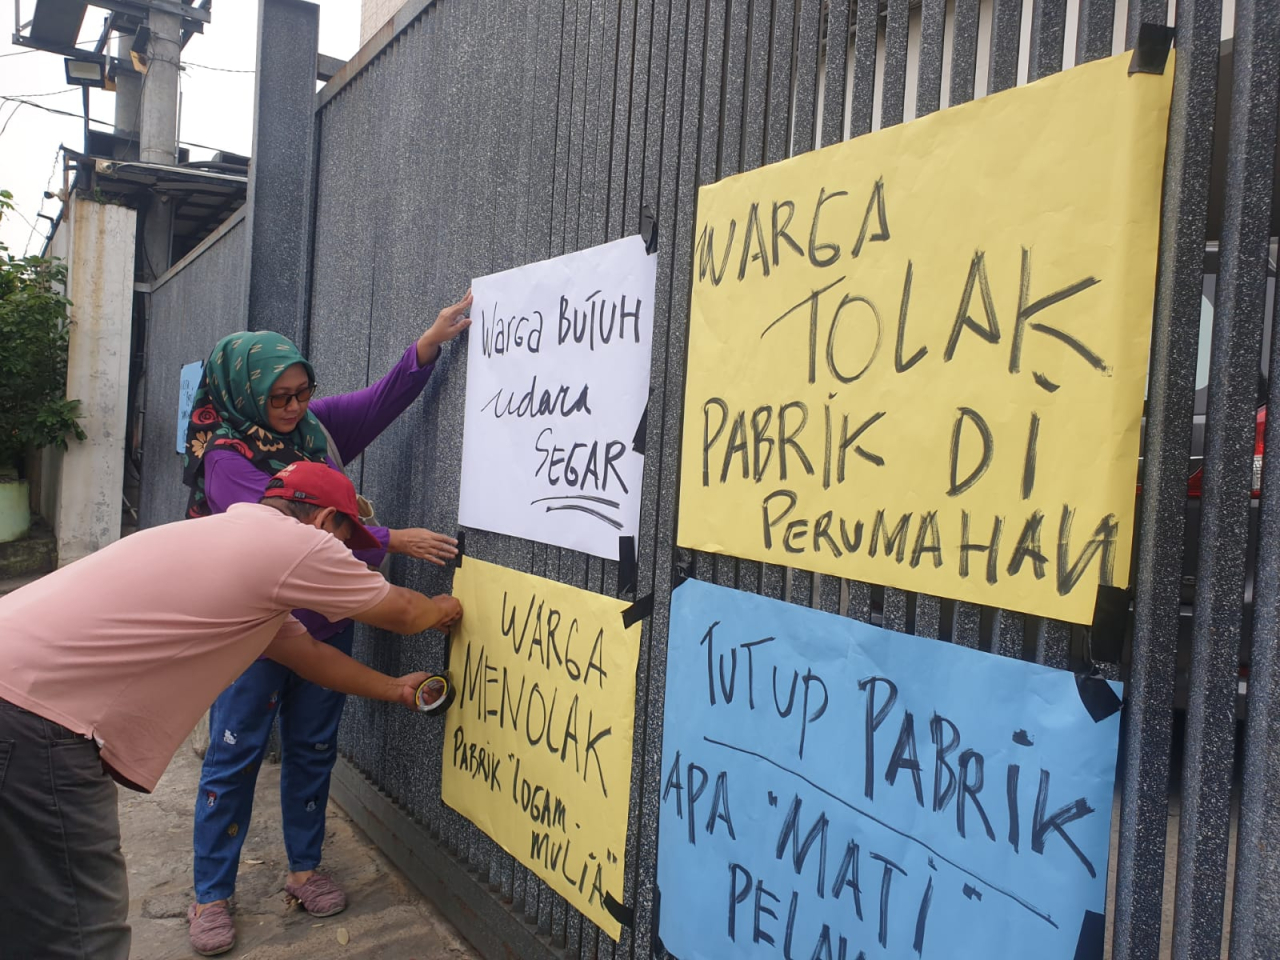 Warga BUTUH
udara
SEGAR
WARGA
TOLAK
PABRIK DI
PERUMAHAN
WARGA
MENOLAK
PABRIK "LOGAM
MULIA"
TUTUP PABRIK
APA "MATI"